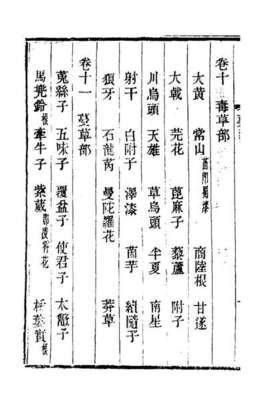 卷十 毒草部
大黃 常山 商陸根 甘遂
大戟 芫花 蓖麻子 藜蘆 附子
川烏頭 天雄 草烏頭 半夏 南星
射干 白附子 澤漆 茵芋 續隨子
狼牙 石龍芮 曼陀羅花 莽草
卷十一 蔓草部
菟絲子 五味子 覆盆子 使君子 木鱉子
馬兜鈴根 牽牛子 紫葳 花 栝蔞實根